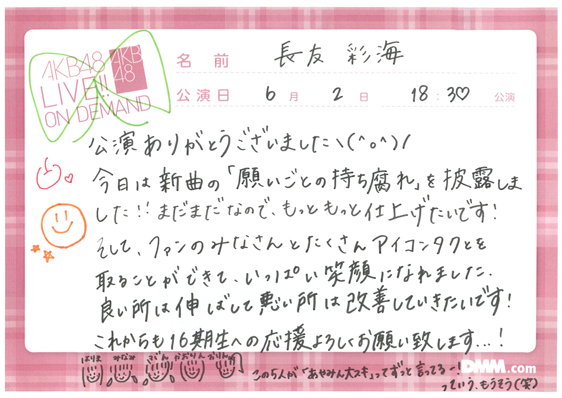 AKB48
LIVE!!
ON DEMAND
AKB
48
名前 長友 彩海
公演日 6月 2日 18:30 公演
公演ありがとうございました\(^o^)/
今日は新曲の「願いごとの持ち腐れ」を披露しま
した!! まだまだなので、もっともっと仕上げたいです!
そして、ファンのみなさんとたくさんアイコンタクトを
取ることができて、いっぱい笑顔になれました.
良い所は伸ばして悪い所は改善していきたいです!
これからも16期生への応援よろしくお願い致します...!
はりま みなみ かおりん
この5人が「あやみん大スキ」ってずっと言ってるー!
っていう、もうそう(笑)
DMM.com